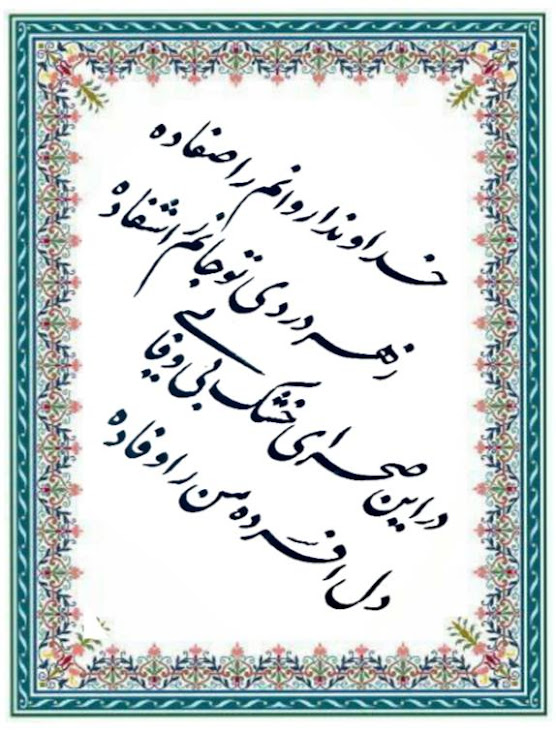 خداوندا روانم را صفا ده
ز هر دردی تو جانم را شفا ده
در این صحرای خشک بی وفایی
دل افسرده من را وفا ده